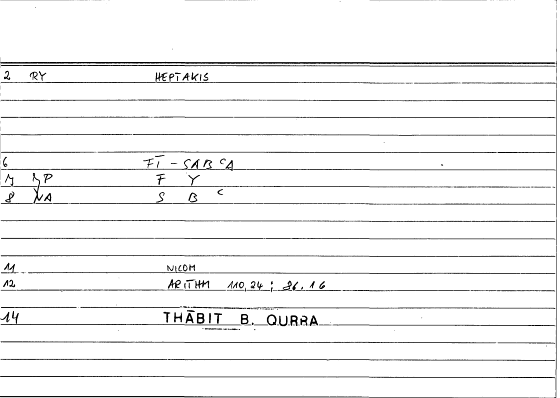 2 RY HEPTAKIS
6 FĪ - SABʿA
7 NP F Y
8 NA S B ʿ
11 NICOM
12 ARITHM 110,24 ; 96.16
14 THĀBIT B. QURRA